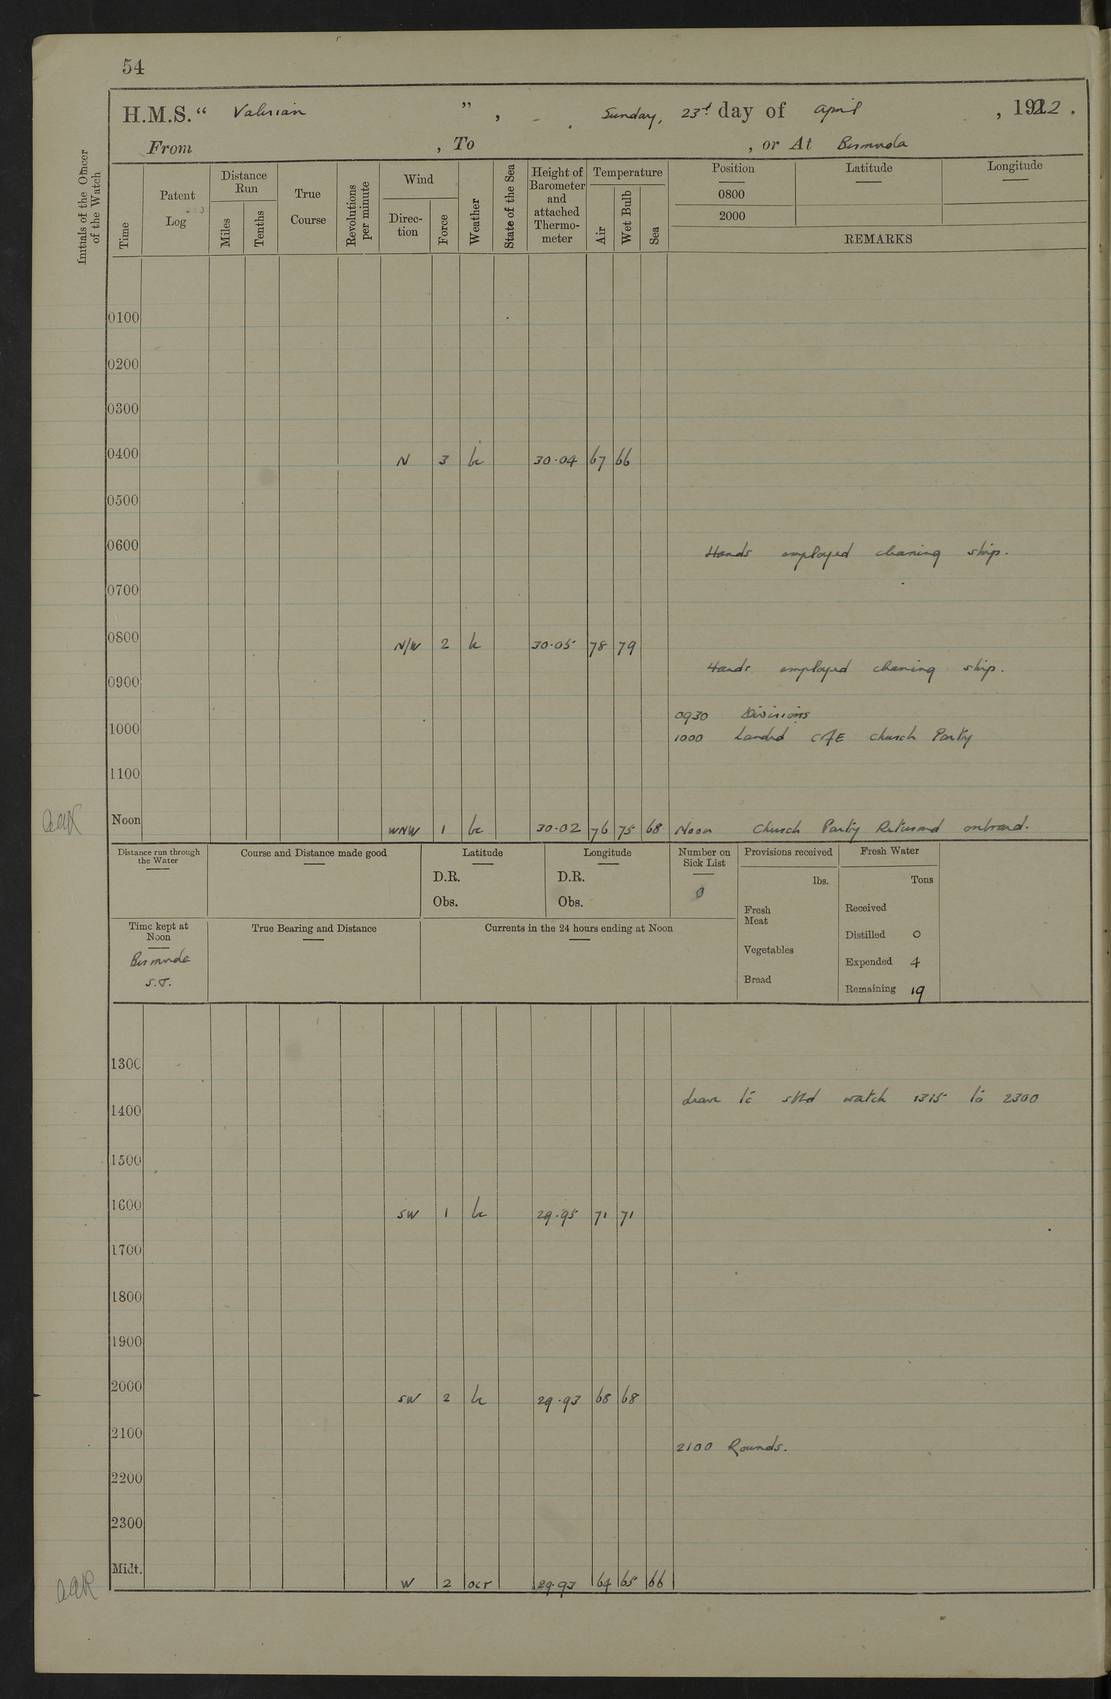 54
H.M.S. " Valerian ", Sunday, 23rd day of April, 1922.
From , To , or At Bermuda
Initials of the Officer of the Watch
Time
Patent Log
Distance Run
Miles
Tenths
True Course
Revolutions per minute
Wind
Direction
Force
Weather
State of the Sea
Height of Barometer and attached Thermometer
Temperature
Air
Wet Bulb
Sea
Position Latitude Longitude
0800
2000
REMARKS
0100
0200
0300
0400 N 3 bc 30.04 67 66
0500
0600 Hands employed cleaning ship.
0700
0800 N/W 2 bc 30.05 78 79
Hands employed cleaning ship.
0900
0930 Divisions
1000 1000 Landed C of E Church Party
1100
Noon WNW 1 bc 30.02 76 75 68 Noon Church Party Returned onboard.
Distance run through the Water
Course and Distance made good
Latitude
D.R.
Obs.
Longitude
D.R.
Obs.
Number on Sick List
0
Provisions received
lbs.
Fresh Meat
Vegetables
Bread
Fresh Water
Tons
Received
Distilled 0
Expended 4
Remaining 19
Time kept at Noon
Bermuda
S.T.
True Bearing and Distance
Currents in the 24 hours ending at Noon
1300
1400 Leave to stbd watch 1315 to 2300
1500
1600 SW 1 bc 29.95 71 71
1700
1800
1900
2000 SW 2 bc 29.93 68 68
2100 2100 Rounds.
2200
2300
Midt. W 2 ocr 29.93 64 65 66